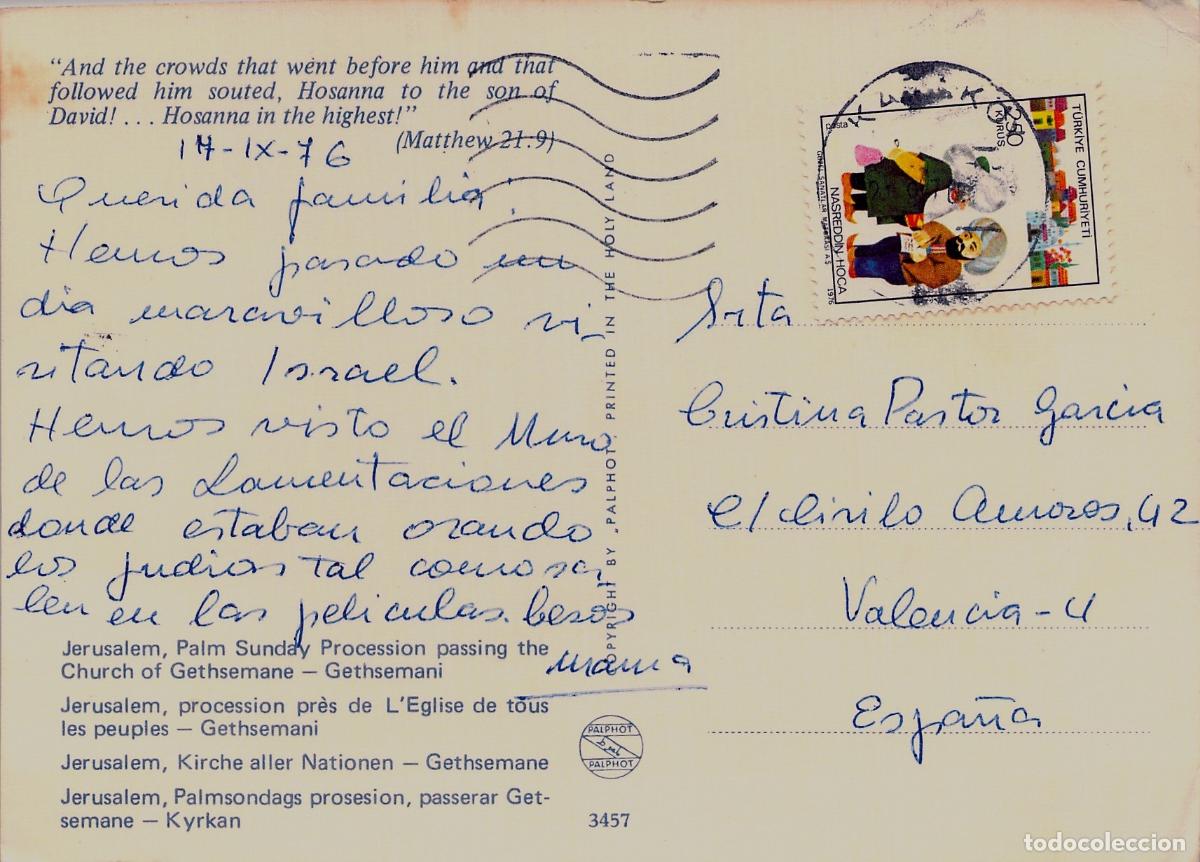 "And the crowds that went before him and that
followed him souted, Hosanna to the son of
David! . . . Hosanna in the highest!"
(Matthew 21.9)
17-IX-76
Querida familia:
Hemos pasado un
dia maravilloso vi-
sitando Israel.
Hemos visto el Muro
de las Lamentaciones
donde estaban orando
los judios tal como sa
len en las peliculas. besos
mama
Jerusalem, Palm Sunday Procession passing the
Church of Gethsemane – Gethsemani
Jerusalem, procession près de L'Eglise de tous
les peuples – Gethsemani
Jerusalem, Kirche aller Nationen – Gethsemane
Jerusalem, Palmsondags prosesion, passerar Get-
semane – Kyrkan
COPYRIGHT BY „PALPHOT" PRINTED IN THE HOLY LAND
PALPHOT
PALPHOT
3457
posta
250
KURUŞ
TÜRKİYE CUMHURİYETİ
NASREDDİN HOCA
1976
Srta
Cristina Pastor Garcia
c/ Cirilo Amoros, 42
Valencia-4
España
todocoleccion